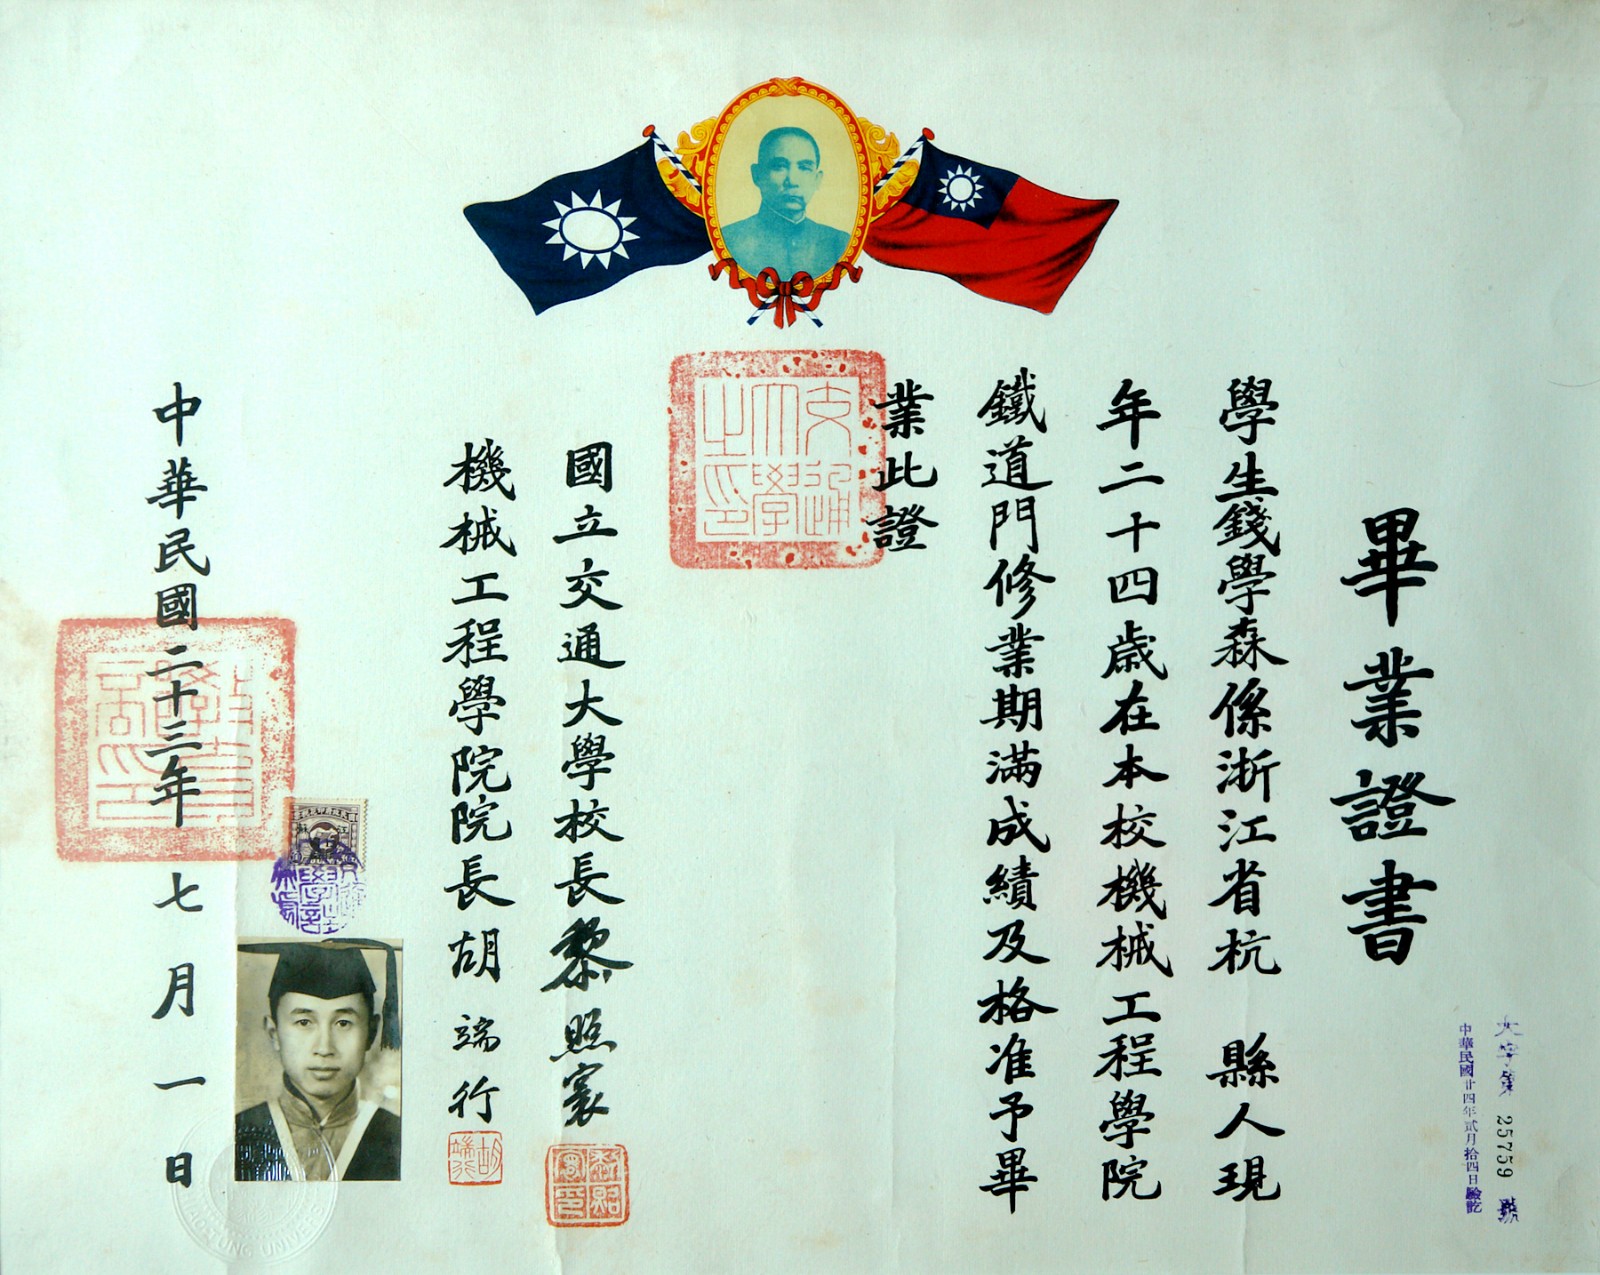 畢業證書
學生錢學森係浙江省杭縣人現
年二十四歲在本校機械工程學院
鐵道門修業期滿成績及格准予畢
業此證
國立交通大學校長黎照寰
機械工程學院院長胡端行
中華民國二十三年七月一日
大字第25759號
中華民國廿四年貳月拾四日驗訖
交通大學之印
教育部印
黎照寰印
胡端行